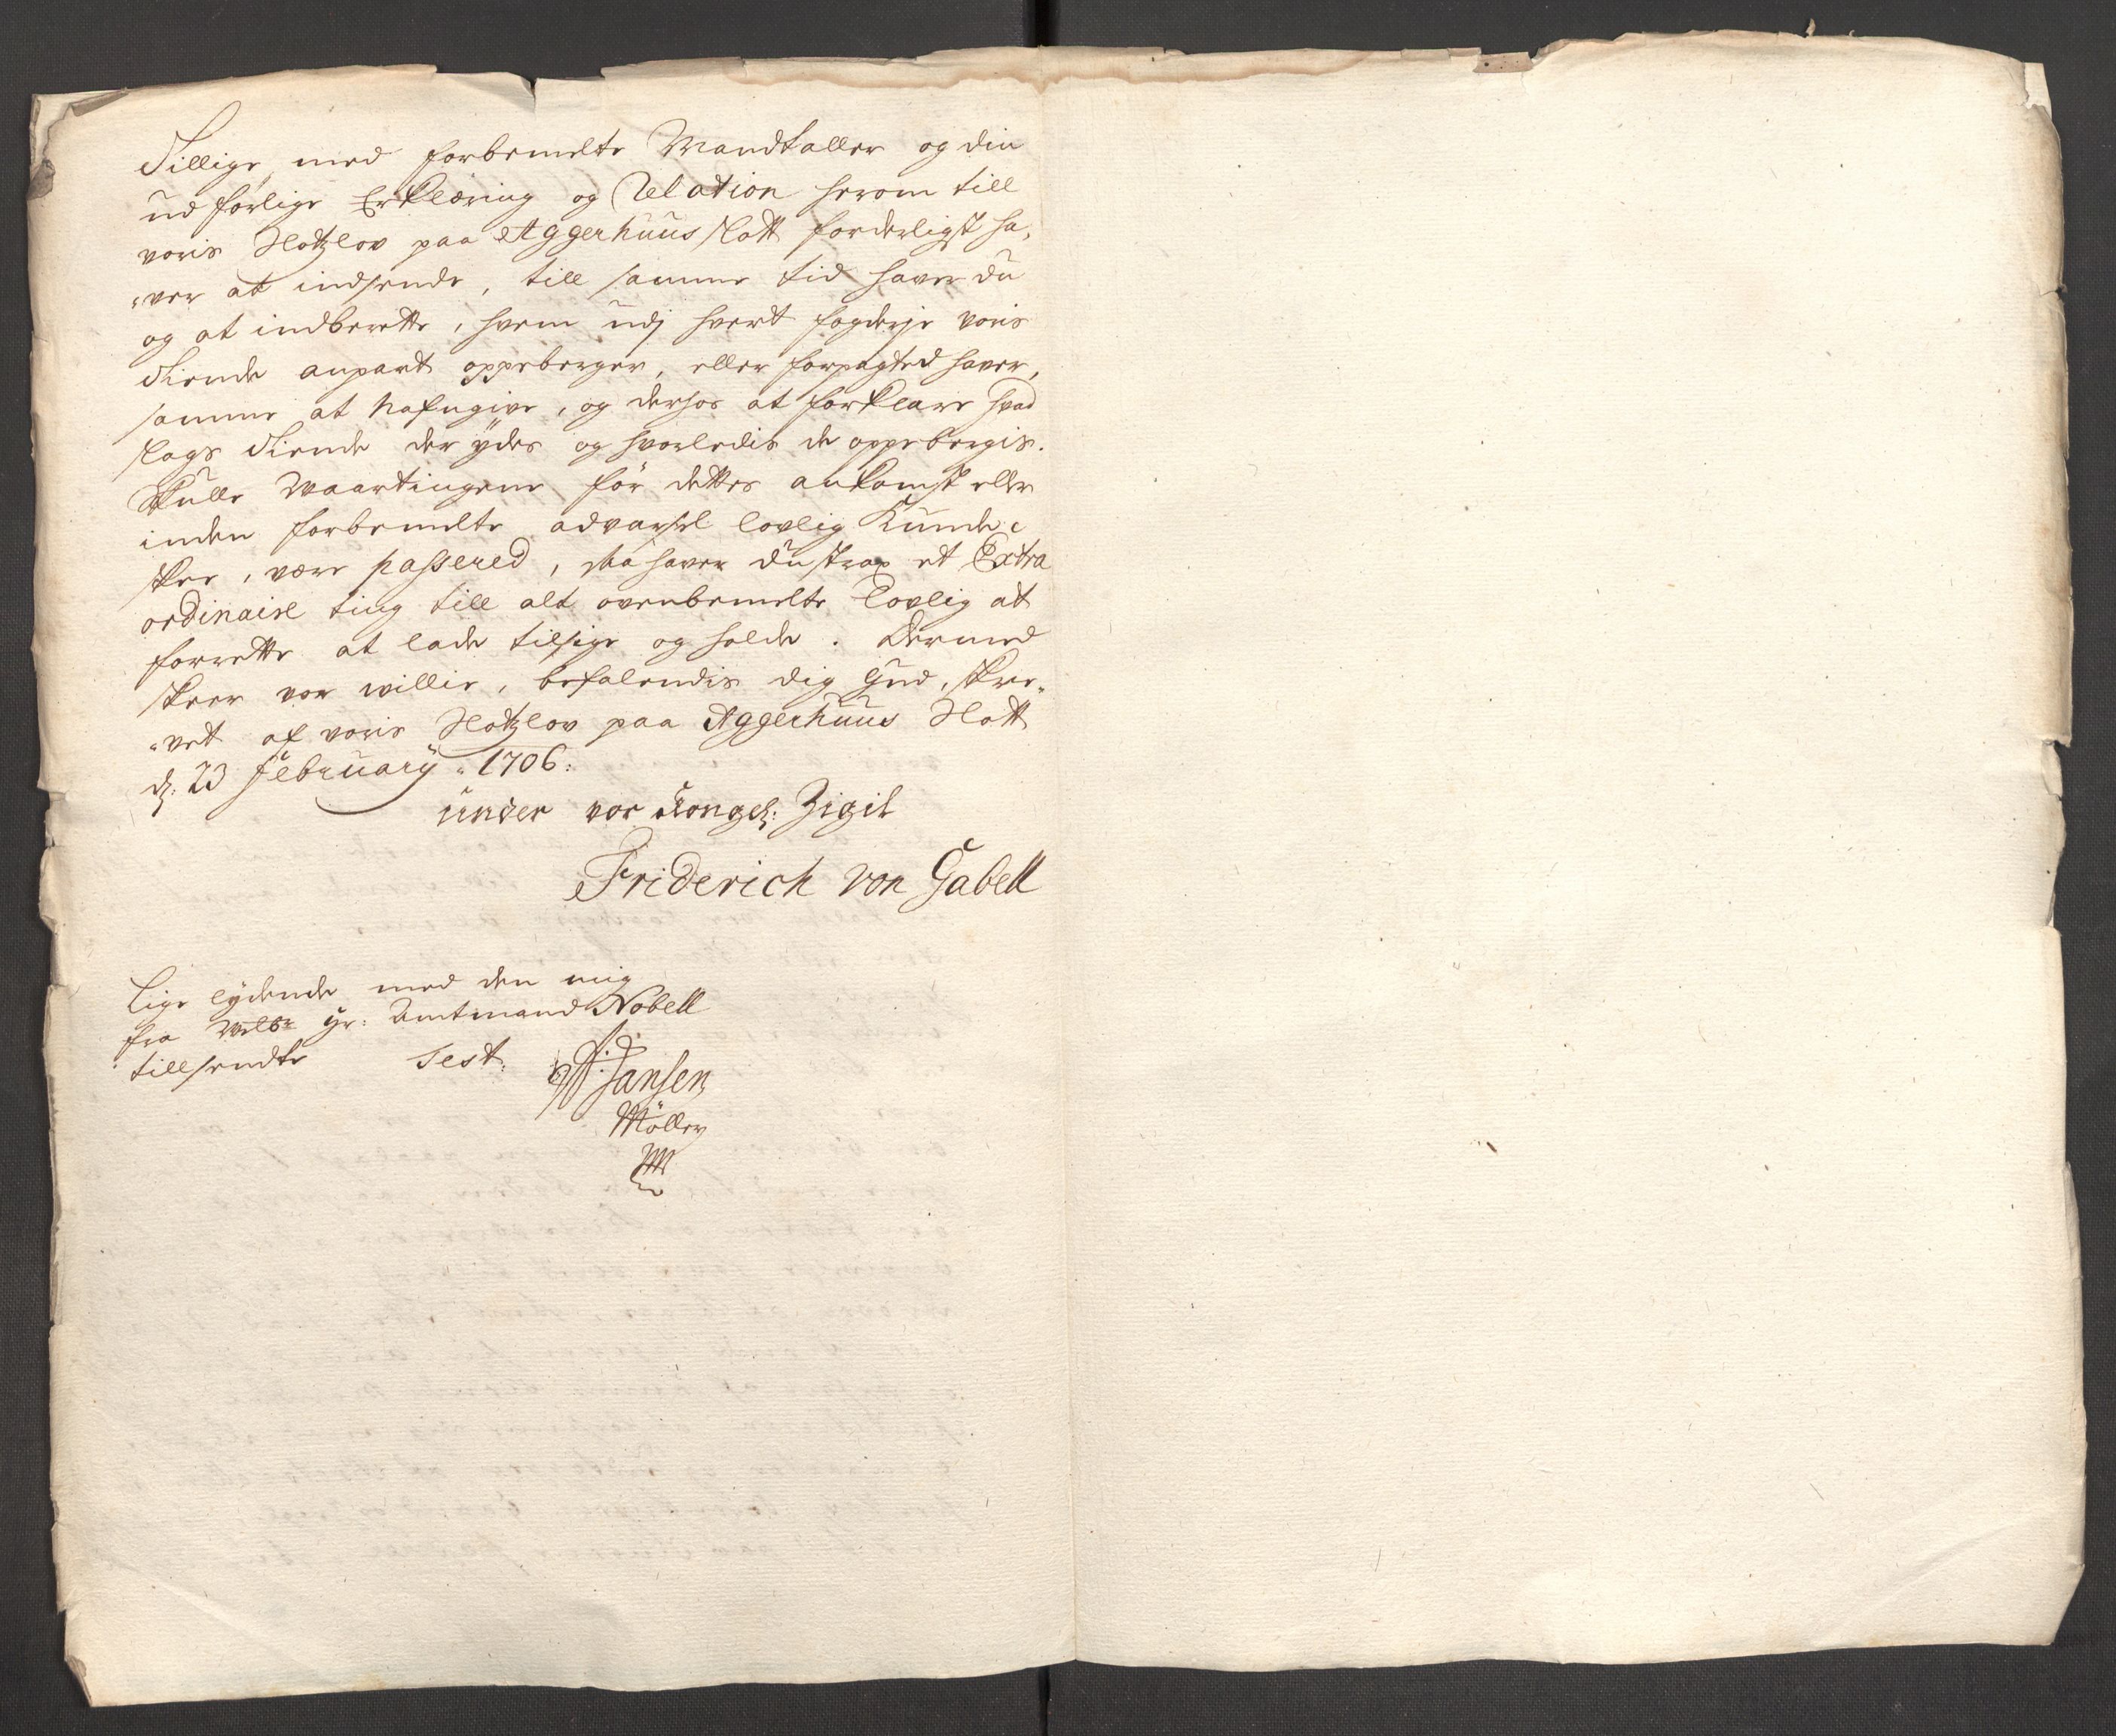 Tillige med forbemelte Mandtaller og din
udførlige Erklæring og Relation herom till
voris Slotzlov paa Aggerhuus slott forderligst ha,
"ver at indsende, till samme tid haver du
og at indberette, hvem udj hvert fogderje voris
Tiende anpart oppeberger, eller forpagted haver,
samme at Nafngive, og derhos at forklare hvad
slags Tiende der ÿdes og hvorledis de oppebergis.
Skulle Waartingene, før dettes ankomst eller
inden forbemelte advarsel lovlig Kunde
skee, være passered, Saa haver du strax et Extra
ordinaire ting till alt ovenbemelte lovlig at
forrette at lade tilsige og holde. Dermed
skeer vor willie, befalendis dig Gud, skre"
"vet af voris Slotzlov paa Aggerhuus Slott
d: 23 february: 1706:
under vor Kongel: Zigil
Friderich von Gabell
Lige lÿdende med den mig
fra Welb: Hr: Amtmand Nobell
tillsendte Test:
Jansen
Möller